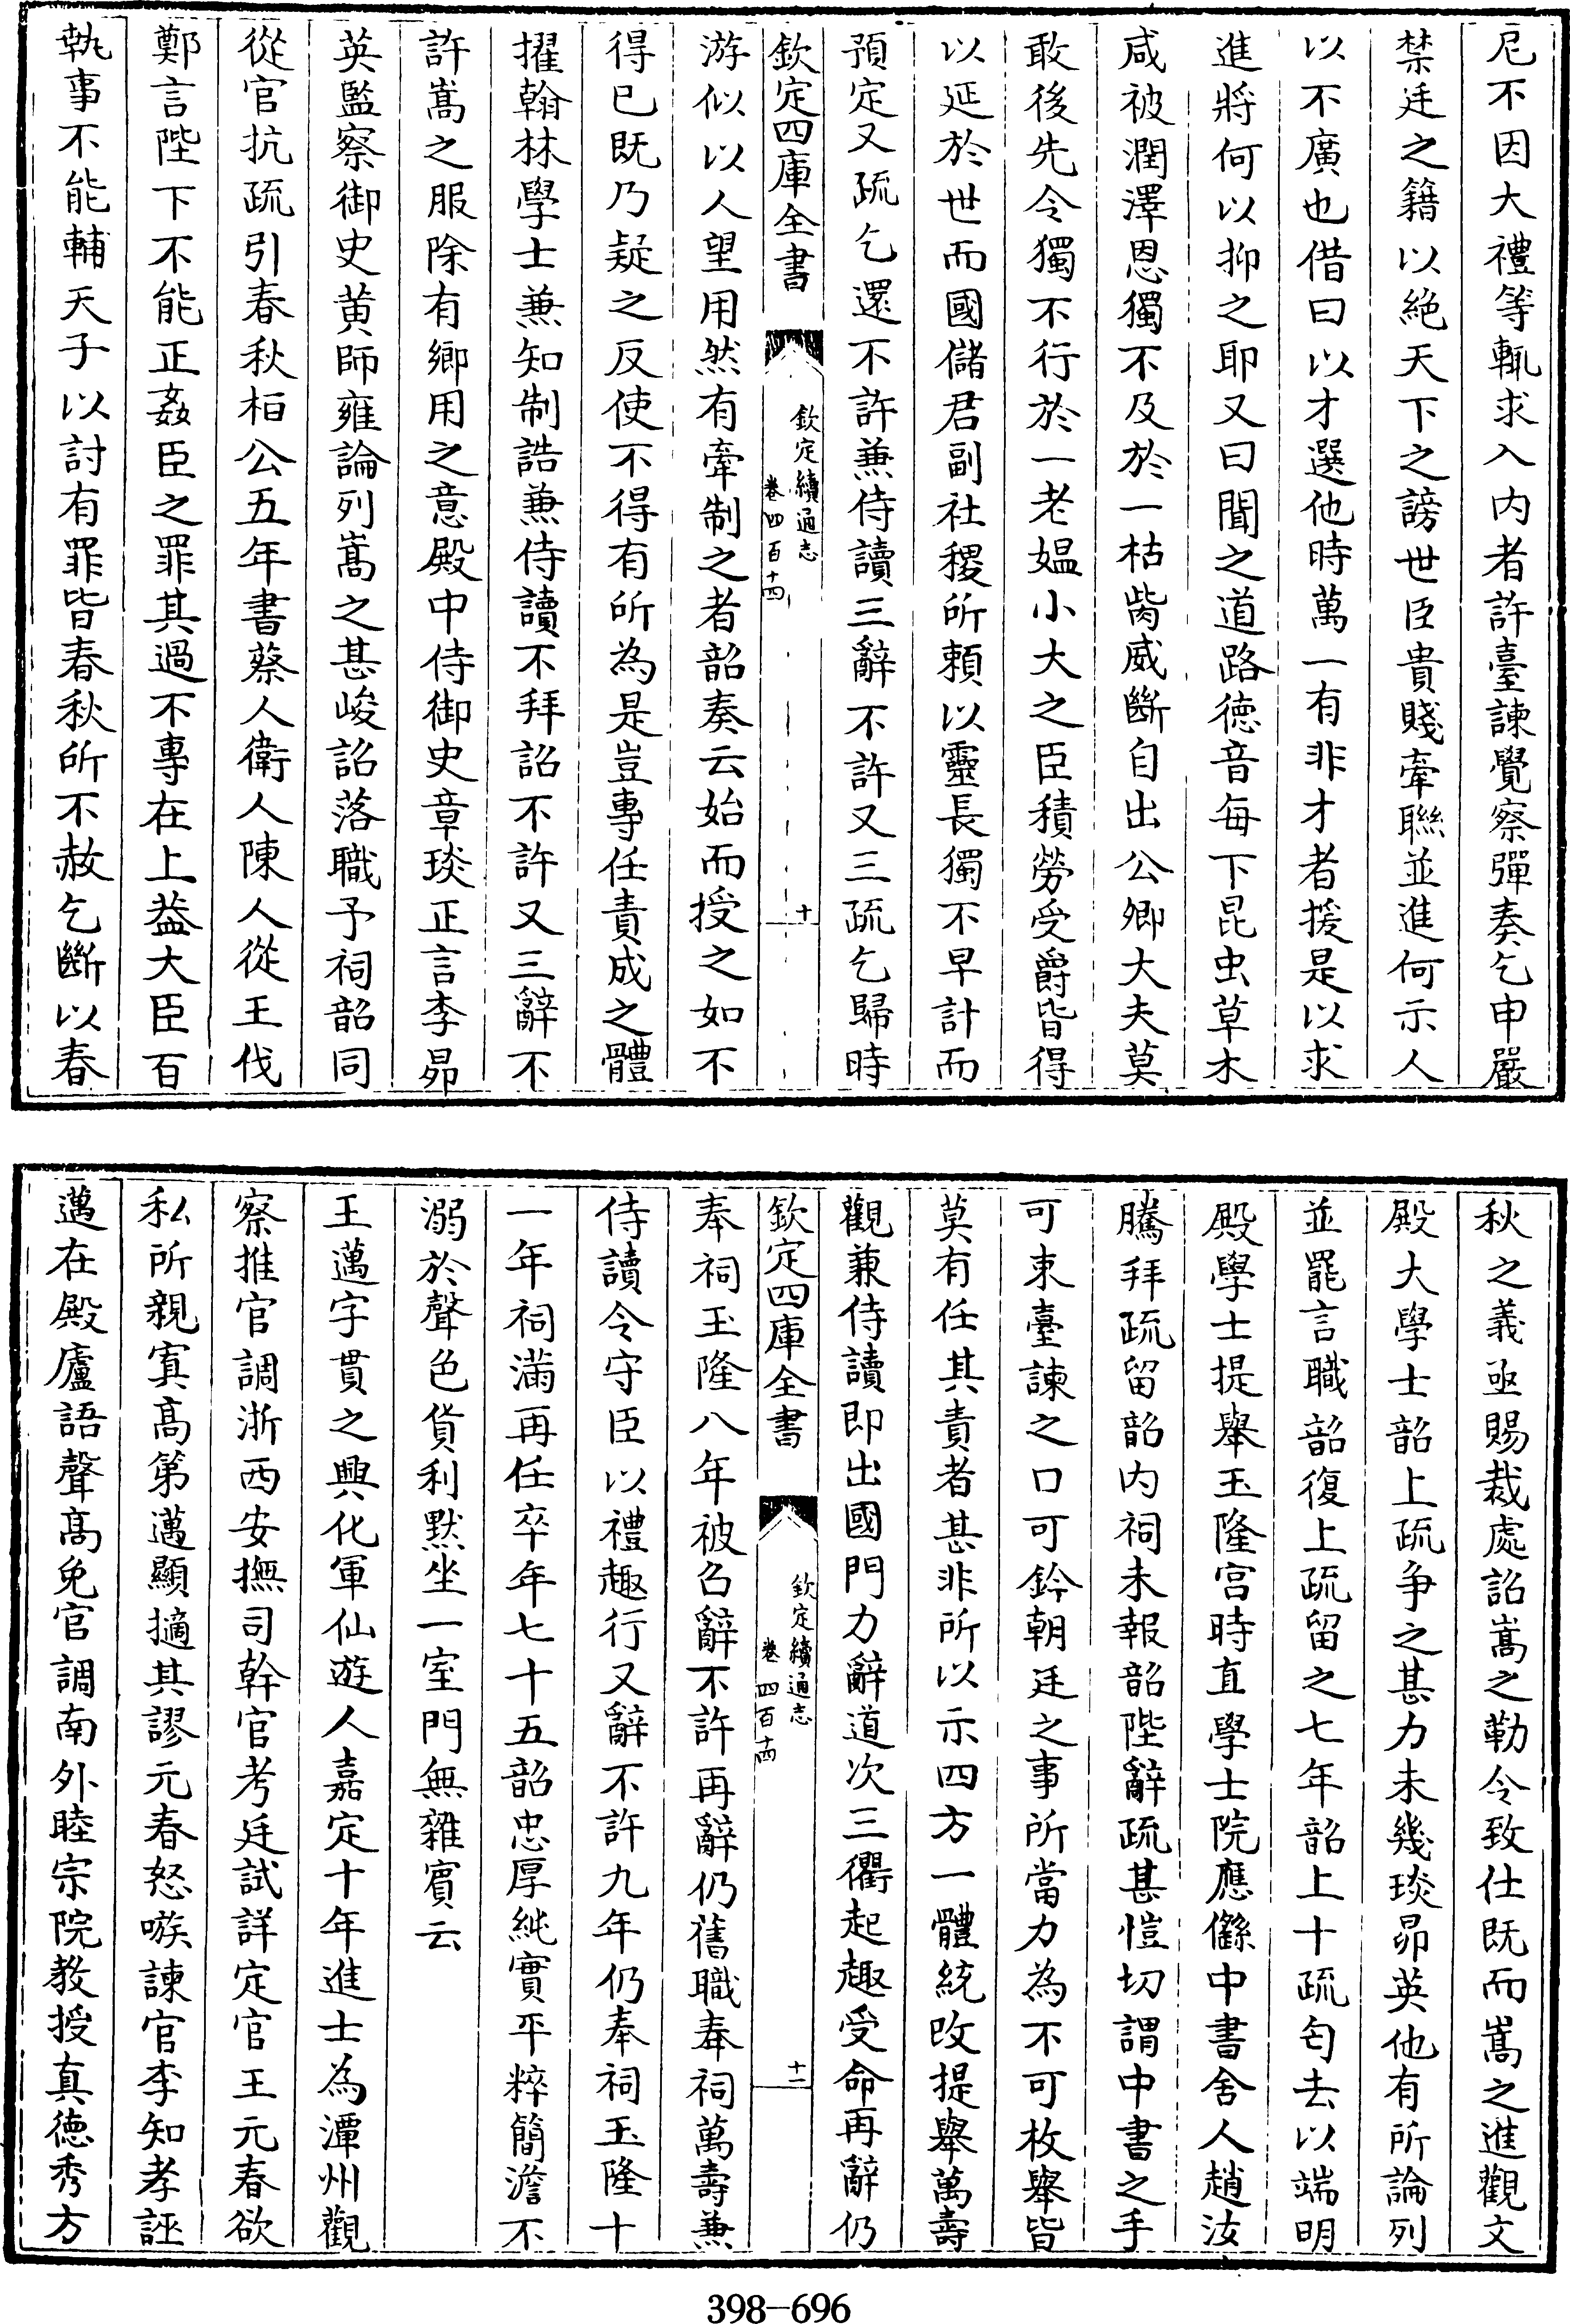 尼不因大禮等輒求入内者許臺諫覺察彈奏乞申嚴
禁廷之籍以絕天下之謗世臣貴賤牽聯並進何示人
以不廣也借曰以才選他時萬一有非才者援是以求
進將何以抑之耶又曰聞之道路德音每下昆虫草木
咸被潤澤恩獨不及於一枯胔威斷自出公卿大夫莫
敢後先令獨不行於一老媼小大之臣積勞受爵皆得
以延於世而國儲君副社稷所賴以靈長獨不早計而
預定又疏乞還不許兼侍讀三辭不許又三疏乞歸時
欽定四庫全書
欽定續通志
卷四百十四
十
游似以人望用然有牽制之者韶奏云始而授之如不
得已既乃疑之反使不得有所為是豈專任責成之體
擢翰林學士兼知制誥兼侍讀不拜詔不許又三辭不
許嵩之服除有鄉用之意殿中侍御史章琰正言李昴
英監察御史黄師雍論列嵩之甚峻詔落職予祠韶同
從官抗疏引春秋桓公五年書蔡人衛人陳人從王伐
鄭言陛下不能正姦臣之罪其過不專在上葢大臣百
執事不能輔天子以討有罪皆春秋所不赦乞斷以春
秋之義亟賜裁處詔嵩之勒令致仕既而嵩之進觀文
殿大學士韶上疏争之甚力未幾琰昴英他有所論列
並罷言職韶復上疏留之七年韶上十疏匄去以端明
殿學士提舉玉隆宮時直學士院應㒡中書舍人趙汝
騰拜疏留韶内祠未報韶陛辭疏甚愷切謂中書之手
可束臺諫之口可鈐朝廷之事所當力為不可枚舉皆
莫有任其責者甚非所以示四方一體統改提舉萬壽
觀兼侍讀即出國門力辭道次三衢起趣受命再辭仍
欽定四庫全書
欽定續通志
卷四百十四
十一
奉祠玉隆八年被召辭不許再辭仍舊職奉祠萬壽兼
侍讀令守臣以禮趣行又辭不許九年仍奉祠玉隆十
一年祠滿再任卒年七十五韶忠厚純實平粹簡澹不
溺於聲色貨利默坐一室門無雜賓云
王邁字貫之興化軍仙遊人嘉定十年進士為潭州觀
察推官調浙西安撫司幹官考廷試詳定官王元春欲
私所親寘高第邁顯擿其謬元春怒嗾諫官李知孝誣
邁在殿廬語聲高免官調南外睦宗院教授真德秀方
398-696